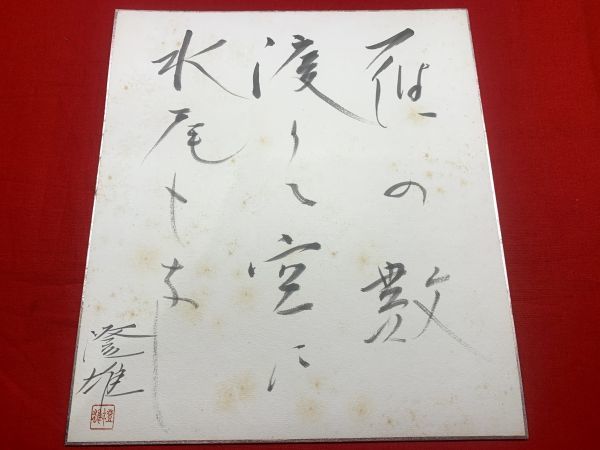 雁の数
渡りて空に
水尾もなし
澄雄
澄雄